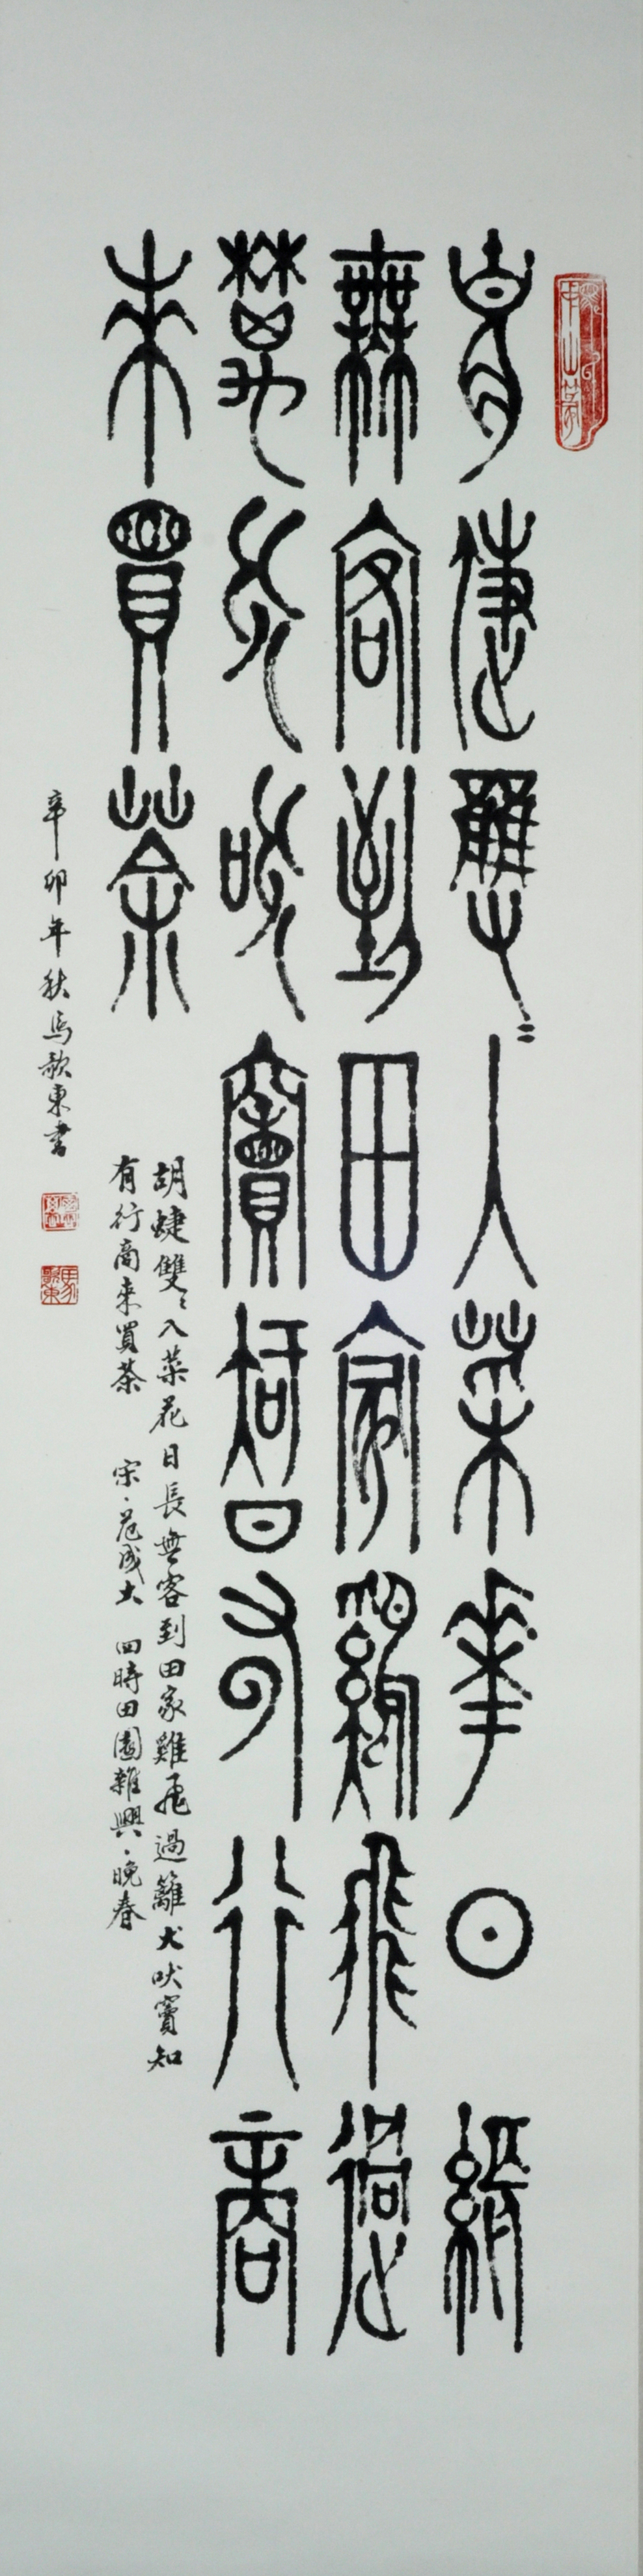 胡蜨雙〻入菜華日長
無客到田家雞飛過
籬犬吠竇智有行商
來買荼
胡蜨雙〻入菜花日長無客到田家雞飛過籬犬吠竇知
有行商來買茶 宋·范成大 四時田園雜興·晚春
辛卯年秋馬歌東書
馬歌東